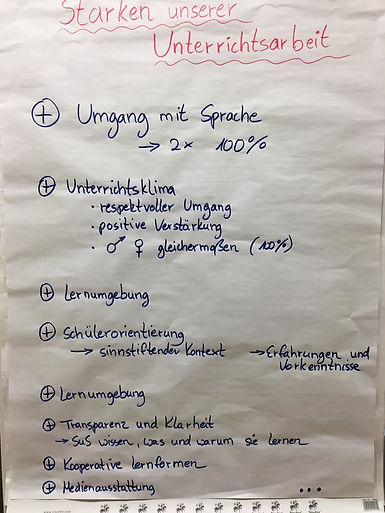 Stärken unserer
Unterrichtsarbeit
⊕ Umgang mit Sprache
→ 2x 100%
⊕ Unterrichtsklima
• respektvoller Umgang
• positive Verstärkung
• ♂ ♀ gleichermaßen (100%)
⊕ Lernumgebung
⊕ Schülerorientierung
→ sinnstiftender Kontext → Erfahrungen und
Vorkenntnisse
⊕ Lernumgebung
⊕ Transparenz und Klarheit
→ SuS wissen, was und warum sie lernen
⊕ Kooperative Lernformen
⊕ Medienausstattung ...